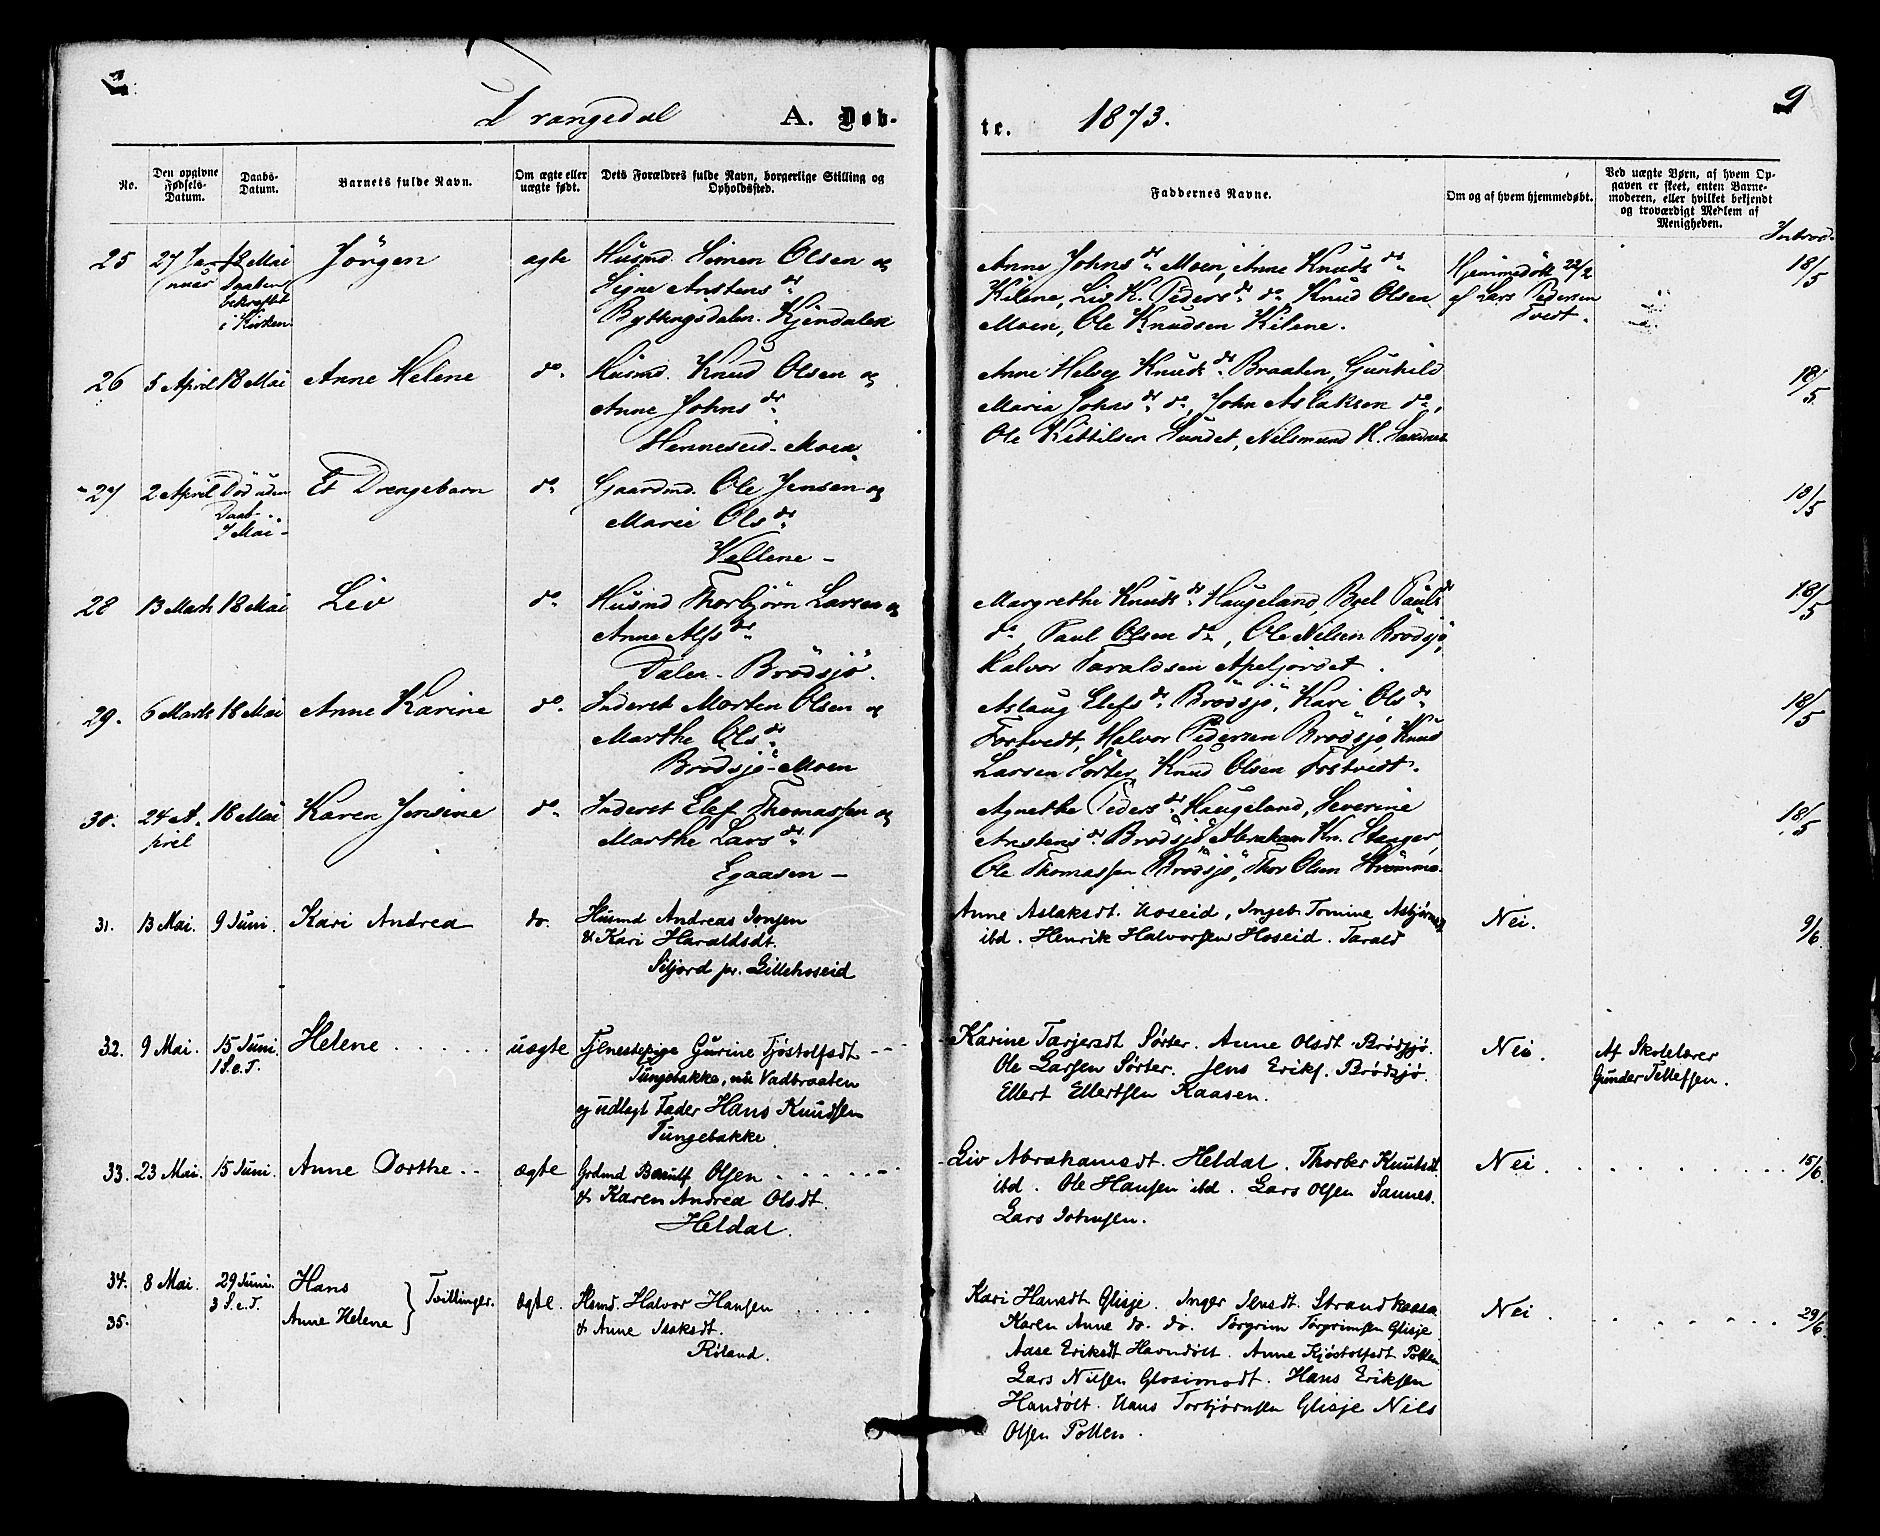 Drangedal A. Døb-
te. 1873. 9
No.
Den opgivne Fødsels-Datum.
Daabs-Datum.
Barnets fulde Navn.
Om ægte eller uægte født.
Dets Forældres fulde Navn, borgerlige Stilling og Opholdssted.
Faddernes Navne.
Om og af hvem hjemmedøbt.
Ved uægte Børn, af hvem Op-
gaven er skeet, enten Barne-
moderen, eller hvilket bekjendt
og troværdigt Medlem af
Menigheden.
Introd.
25 27 Ja- 18 Mai Jörgen ægte Husmd. Simen Olsen og
nuar Daaben Signe Arstens dr
bekræftet Byttingsdalen. Kjendalen
i Kirken
Anne Johns dr Moen, Anne Knuds dr Hjemmedöbt 22/2 18/5
Kilene, Liv K. Peders dr do Knud Olsen af Lars Pedersen
Moen, Ole Knudsen Kilene. Tvedt.
26 5 April 18 Mai Anne Helene do. Husmd. Knud Olsen og
Anne Johns dr
Henneseid-Moen
Anne Helvig Knuds dr Braaten, Gunhild 18/5
Maria Johns dr do, John Aslaksen do,
Ole Kittilsen Sundet, Nilsmund K.
27 2 April Död uden Et Drengebarn do Gaardmd. Ole Jensen og 18/5
Daab Maria Ols dr
7 Mai - Vellene -
28 13 Marts 18 Mai Liv do. Husmd Thorbjörn Larsen og
Anne Alfs dr
Dalen - Brödsjö.
Margrethe Knuds dr Haugeland, Boel Pauls dr 18/5
do Paul Olsen do, Ole Nilsen Brödsjö,
Halvor Taraldsen Apeljordet.
29. 6 Marts 18 Mai Anne Karine do. Inderst Morten Olsen og
Marthe Ols dr
Brödsjö-Moen
Aslaug Elefs dr Brödsjö, Kari Ols dr 18/5
Fostvedt, Halvor Pedersen Brödsjö, Knud
Larsen Sörter, Knud Olsen Fostvedt.
30. 24 A- 18 Mai Karen Jensine do. Inderst Elef Thomassen og
pril Marthe Lars dr
Egaasen -
Agnethe Peders dr Haugeland, Severine 18/5
Arstens dr Brödsjö Abraham Kn. Stanger,
Ole Thomassen Brödsjö, Thor Olsen Strömme.
31. 13 Mai. 9 Juni. Kari Andrea do. Husmd Andreas Jonsen
& Kari Haraldsdt.
Siljord pr. Lillehoseid
Anne Aslaksdt. Hoseid, Ingeb. Tomine Asbjørnsen Nei. 9/6
ibd. Henrik Halvorsen Hoseid. Tarald
32. 9 Mai. 15 Juni. Helene . . . . . uægte Tjenestepige Gurine Tjøstolfsdt
1 S. e. T. Tungebakke, nu Vadbraaten
og udlagt Fader Hans Knudsen
Tungebakke.
Karine Tarjersdt Sørter. Anne Olsdt. Brødsjø. Nei. Af Skolelærer
Ole Larsen Sørter. Jens Eriks. Brødsjø. Gunder Tellefsen.
Ellert Ellertsen Kaasen.
33. 23 Mai. 15 Juni. Anne Dorthe . . ægte Grdmd Olsen . . . . .
& Karen Andrea Olsdt.
Heldal.
Liv Abrahamsdt. Heldal. Thorber Knutsdt Nei . . . . . . . . . 15/6.
ibd. Ole Hansen ibd. Lars Olsen Sannes.
Lars Johnsen.
34. 8 Mai. 29 Juni. Hans
3 S. e. T. } Tvillinger. ægte. Hsmd. Halvor Hansen . . . . .
35. Anne Helene & Anne Isaksdt.
Røland.
Kari Hansdt Glisje. Inger Jensdt. Strandkaasa Nei . . . . . . . . 29/6.
Karen Anne do. do. Torgrim Torgrimsen Glisje
Aase Eriksdt Havndølt. Anne Kjøstolfsdt Potten
Lars Nilsen Glosimodt. Hans Eriksen
Handølt. Hans Torbjørnsen Glisje Nils
Olsen Potten.